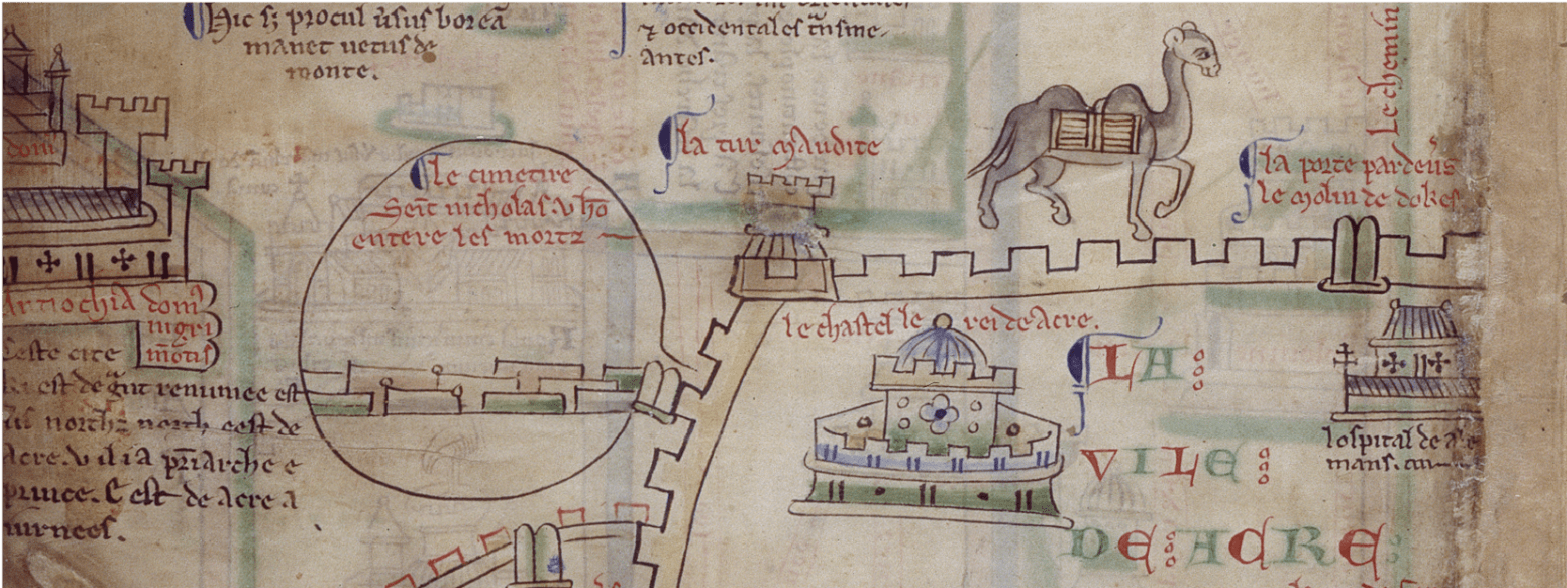 Hic sz procul ūsus boreā
manet uetus de
monte.
⁊ occidentales t̄nsme-
antes.
Le chemin
dom
la tur maudite
le cimetire
Seīt nicholas. v hō
entere les mortz
la porte pardeūs
le molin de dokes
Antiochia dom⁹
nigri
mōtis
Ceste cite
est de g̃nt renumee est
north⁊ north est de
Acre. v il i a p̃riarche e
prince. C est de acre a
iurnees.
le chastel le rei de Acre.
LA:
VILE:
DE:ACRE:
lospital de
mans.